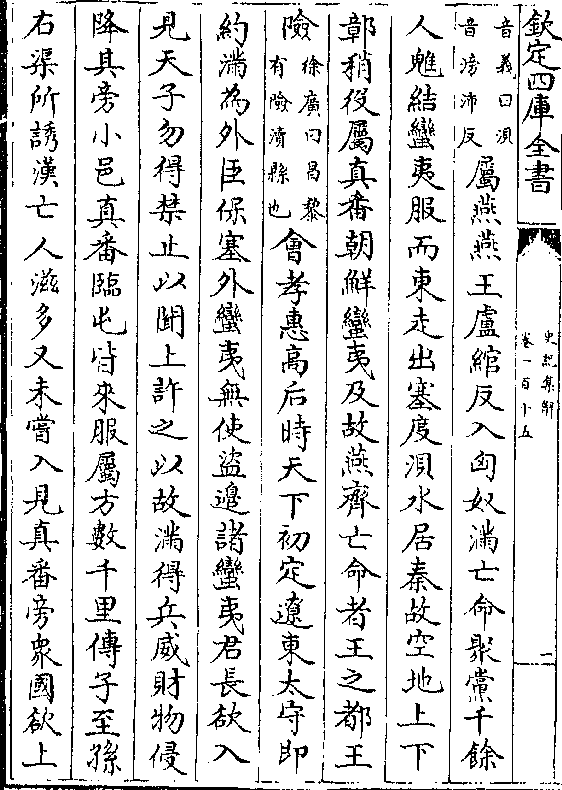 欽定四庫全書
史記集解
卷一百十五
二
音義曰浿
音滂沛反
屬燕燕王盧綰反入匈奴滿亡命聚黨千餘
人魋結蠻夷服而東走出塞度浿水居秦故空地上下
鄣稍役屬真番朝鮮蠻夷及故燕齊亡命者王之都王
險
徐廣曰昌黎
有險瀆縣也
會孝惠高后時天下初定遼東太守即
約滿為外臣保塞外蠻夷無使盜邊諸蠻夷君長欲入
見天子勿得禁止以聞上許之以故滿得兵威財物侵
降其旁小邑真番臨屯皆來服屬方數千里傳子至孫
右渠所誘漢亡人滋多又未嘗入見真番旁衆國欲上